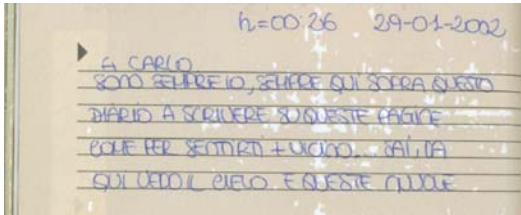 h=00:26 29-01-2002
A CARLO
SONO SEMPRE IO, SEMPRE QUI SOPRA QUESTO
DIARIO A SCRIVERE SU QUESTE PAGINE
COME PER SENTIRTI + VICINO. SAI, DA
QUI VEDO IL CIELO E QUESTE NUVOLE